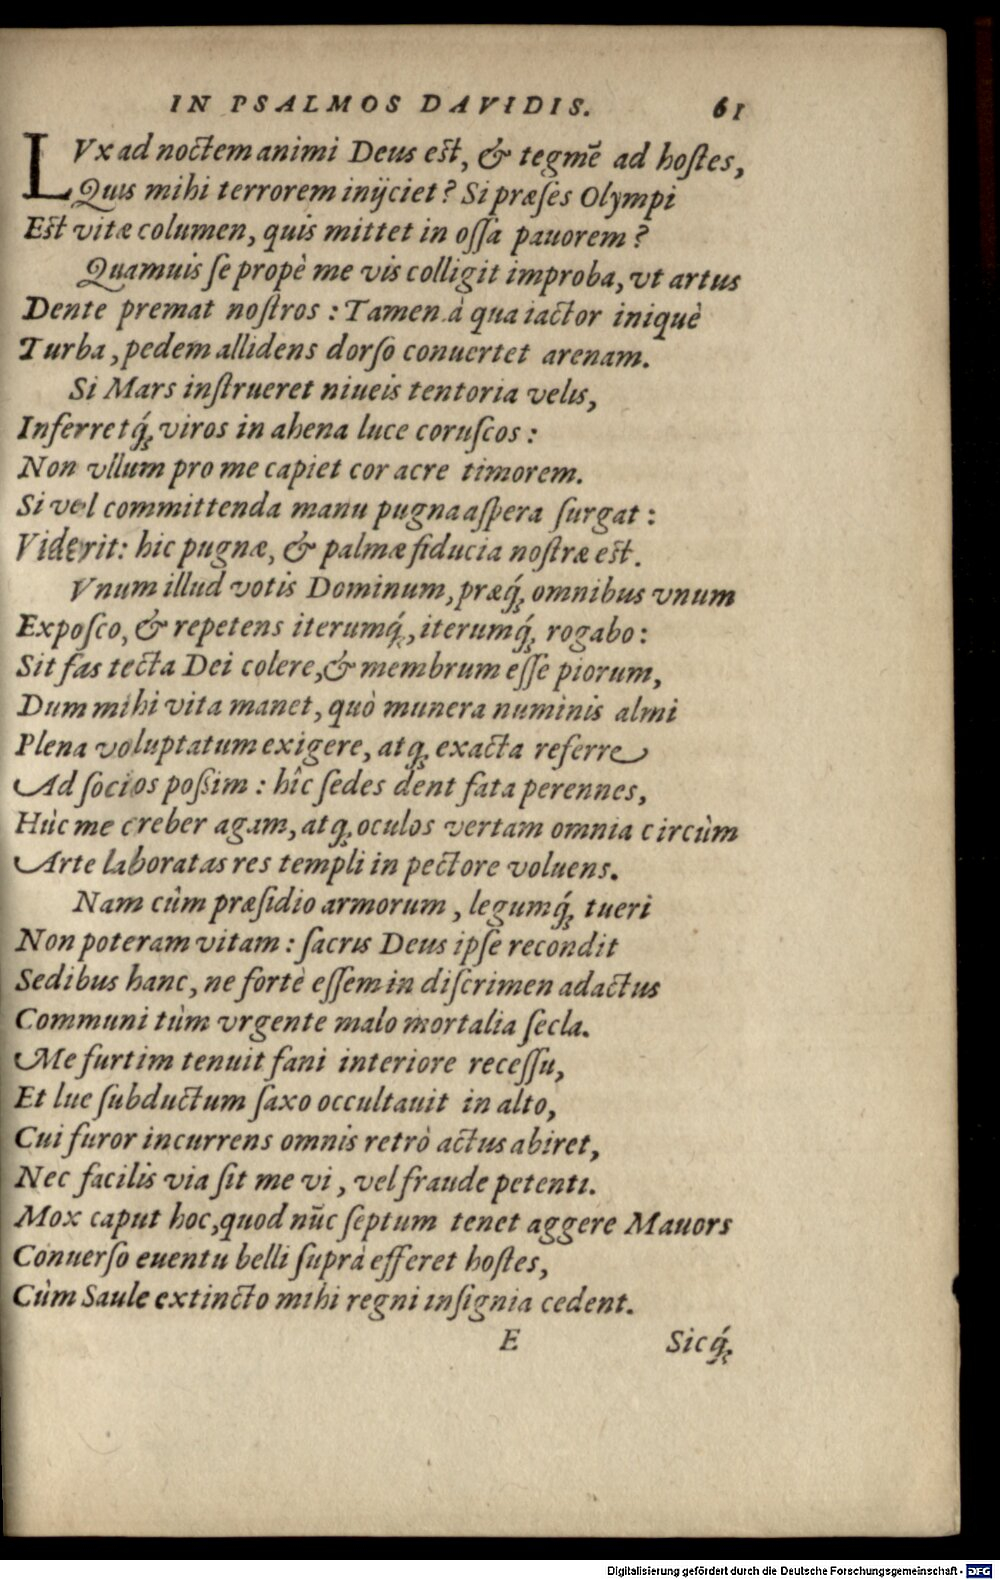 IN PSALMOS DAVIDIS. 61
LVx ad noctem animi Deus est, & tegmẽ ad hoſtes,
Quis mihi terrorem inijciet? Si præſes Olympi
Est vitæ columen, quis mittet in oſſa pauorem?
Quamuis ſe propè me vis colligit improba, vt artus
Dente premat noſtros: Tamen à qua iactor iniquè
Turba, pedem allidens dorſo conuertet arenam.
Si Mars inſtrueret niueis tentoria velis,
Inferretq́; viros in ahena luce coruſcos:
Non vllum pro me capiet cor acre timorem.
Si vel committenda manu pugna aſpera ſurgat:
Viderit: hic pugnæ, & palmæ fiducia noſtræ est.
Vnum illud votis Dominum, præq́; omnibus vnum
Expoſco, & repetens iterumq́;, iterumq́; rogabo:
Sit fas tecta Dei colere, & membrum eſſe piorum,
Dum mihi vita manet, quò munera numinis almi
Plena voluptatum exigere, atq; exacta referre
Ad ſocios poßim: hîc ſedes dent fata perennes,
Hùc me creber agam, atq; oculos vertam omnia circùm
Arte laboratas res templi in pectore voluens.
Nam cùm præſidio armorum, legumq́; tueri
Non poteram vitam: ſacris Deus ipſe recondit
Sedibus hanc, ne fortè eſſem in diſcrimen adactus
Communi tùm vrgente malo mortalia ſecla.
Me furtim tenuit fani interiore receſſu,
Et lue ſubductum ſaxo occultauit in alto,
Cui furor incurrens omnis retrò actus abiret,
Nec facilis via ſit me vi, vel fraude petenti.
Mox caput hoc, quod nũc ſeptum tenet aggere Mauors
Conuerſo euentu belli ſuprà efferet hoſtes,
Cùm Saule extincto mihi regni inſignia cedent.
E Sicq́;
Digitalisierung gefördert durch die Deutsche Forschungsgemeinschaft - DFG